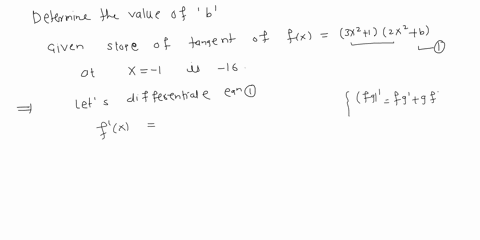 Determine the value of 'b'
Given slope of tangent of f(x) = (3x²+1) (2x²+b) — ①
at x=-1 is -16
⇒ Let's differentiale eqn ①
{ (fg)' = fg'+gf'
f'(x) =